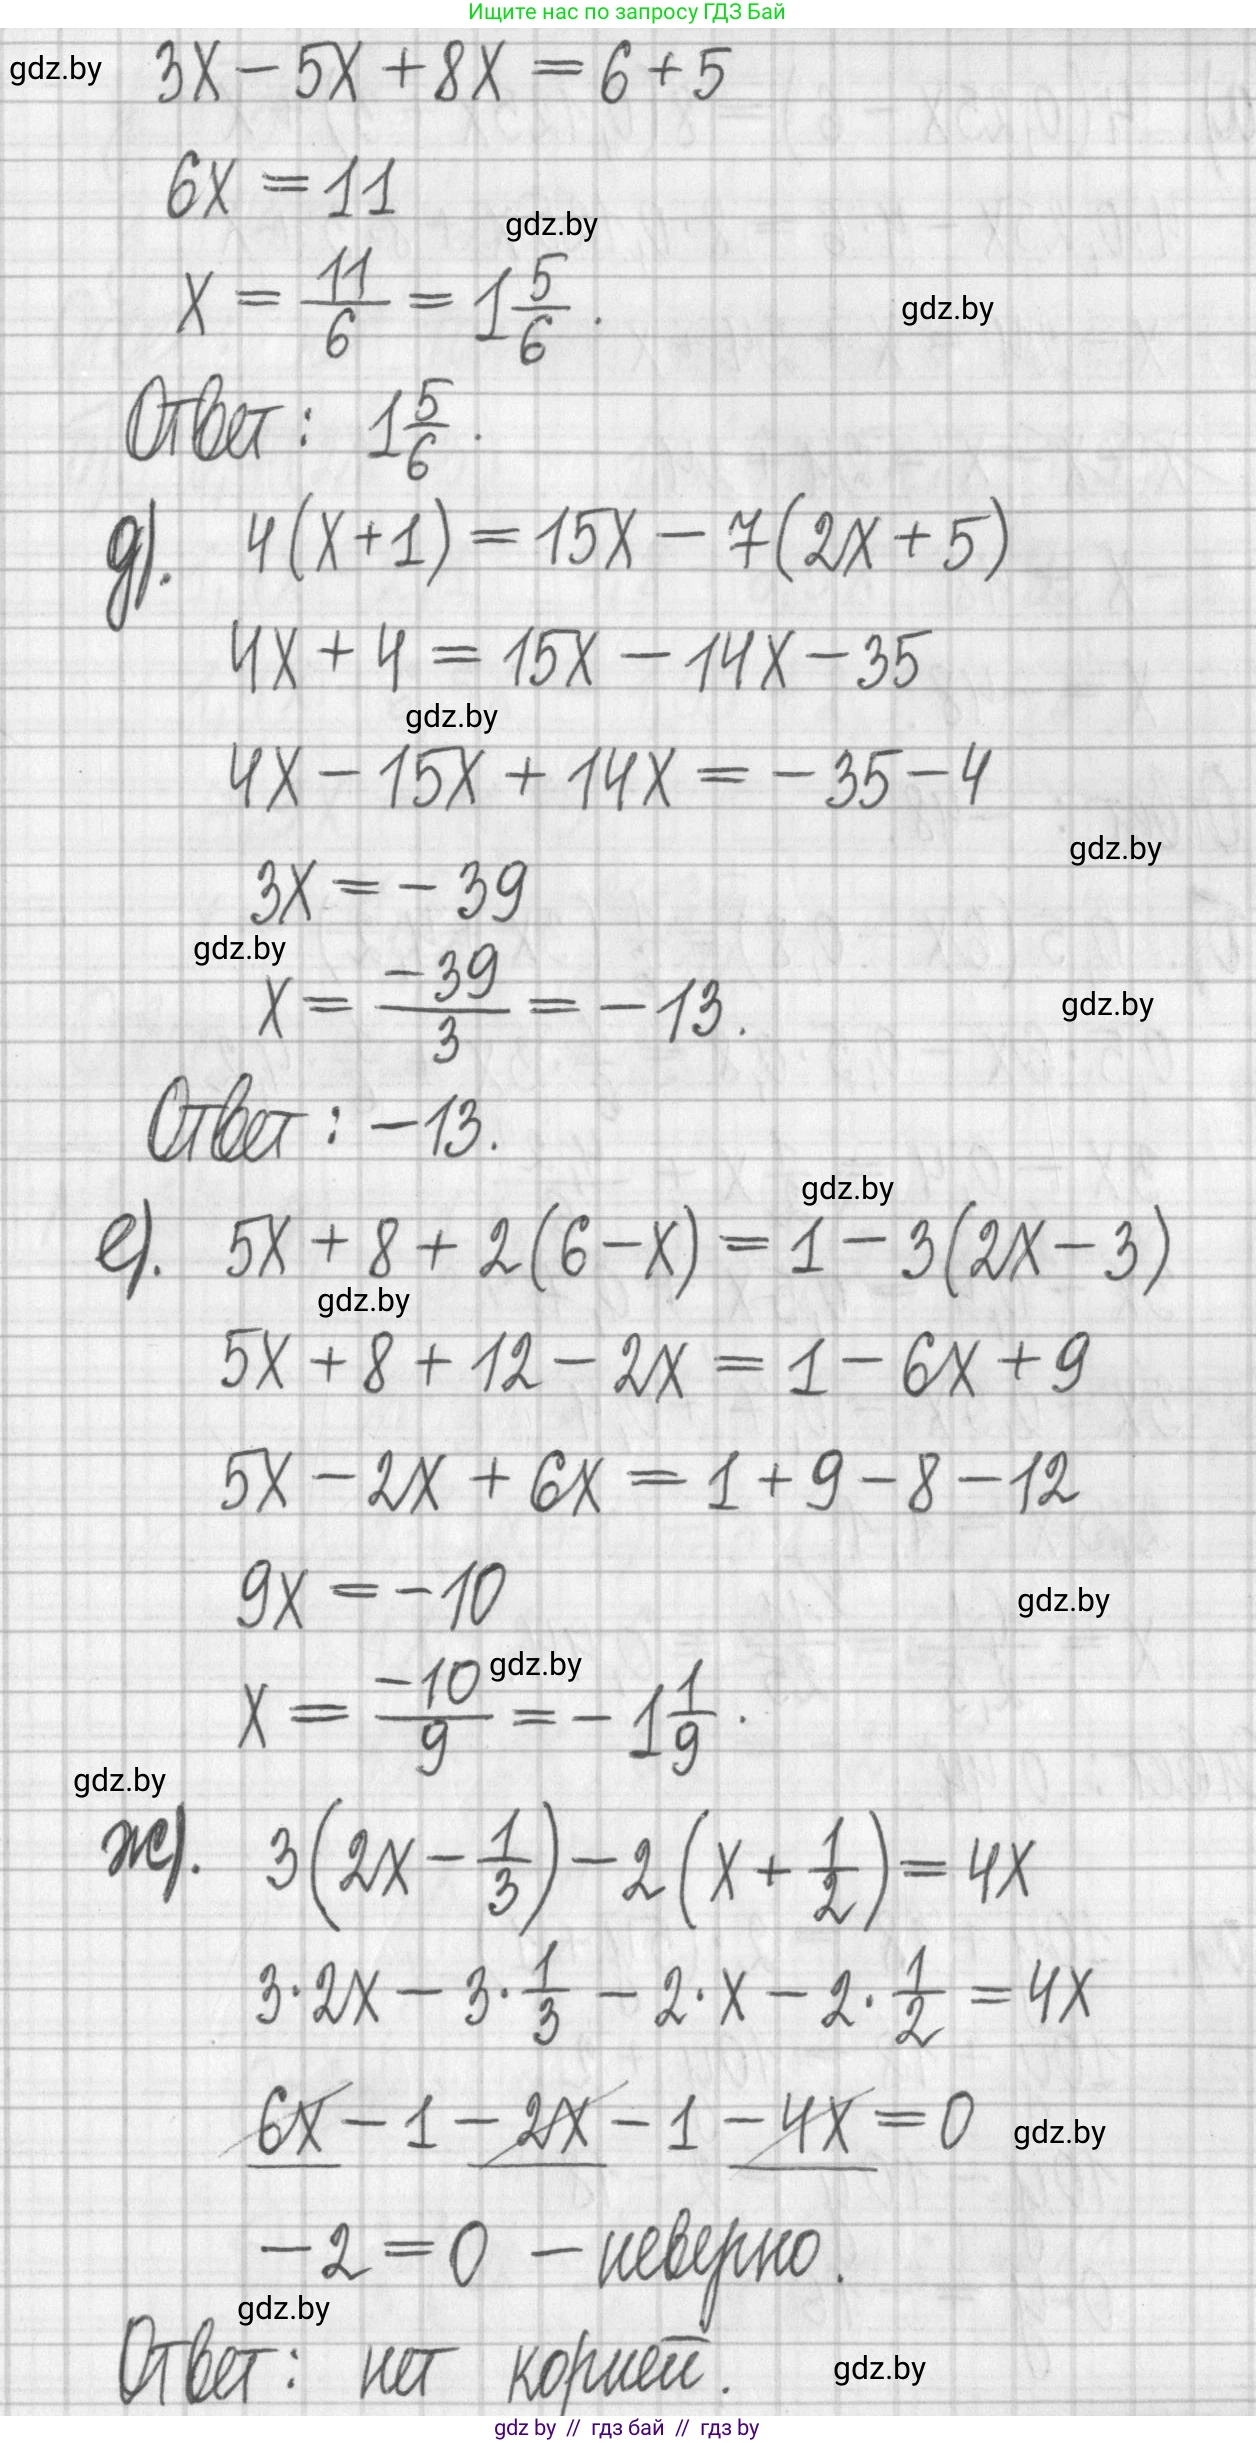 Ищите нас по запросу ГДЗ Бай
gdz.by 3x - 5x + 8x = 6 + 5
6x = 11
gdz.by
x = 11/6 = 1 5/6 .
gdz.by
Ответ: 1 5/6 .
д). 4(x+1) = 15x - 7(2x+5)
4x + 4 = 15x - 14x - 35
gdz.by
4x - 15x + 14x = -35 - 4
gdz.by
3x = -39
gdz.by
x = -39/3 = -13.
gdz.by
Ответ: -13.
gdz.by
е). 5x + 8 + 2(6-x) = 1 - 3(2x-3)
gdz.by
5x + 8 + 12 - 2x = 1 - 6x + 9
5x - 2x + 6x = 1 + 9 - 8 - 12
9x = -10
gdz.by
gdz.by
x = -10/9 = -1 1/9 .
gdz.by
ж). 3(2x - 1/3) - 2(x + 1/2) = 4x
3·2x - 3·1/3 - 2·x - 2·1/2 = 4x
6x - 1 - 2x - 1 - 4x = 0
gdz.by
-2 = 0 - неверно.
gdz.by
Ответ: нет корней.
gdz.by
gdz by // гдз бай // гдз by